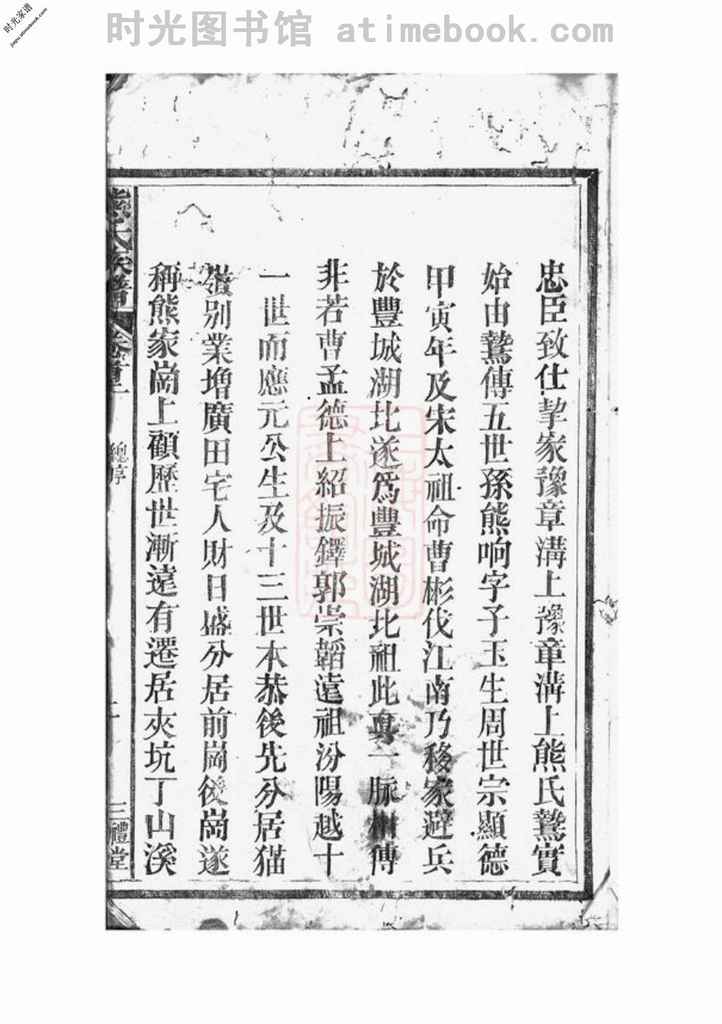 时光图书馆 atimebook.com
时光家谱
jiapu.atimebook.com
忠臣致仕挈家豫章溝上豫章溝上熊氏鷟實
始由鷟傳五世孫熊响字子玉生周世宗顯德
甲寅年及宋太祖命曹彬伐江南乃移家避兵
於豐城湖比遂爲豐城湖北祖此真一脈相傳
非若曹孟德上紹振鐸郭崇韜遠祖汾陽越十
一世而應元公生及十三世本恭後先分居猫
嶺别業增廣田宅人財日盛分居前崗後崗遂
稱熊家崗上顧歷世漸遠有遷居夾坑丁山溪
熊氏族譜 卷首上 總序 三禮堂